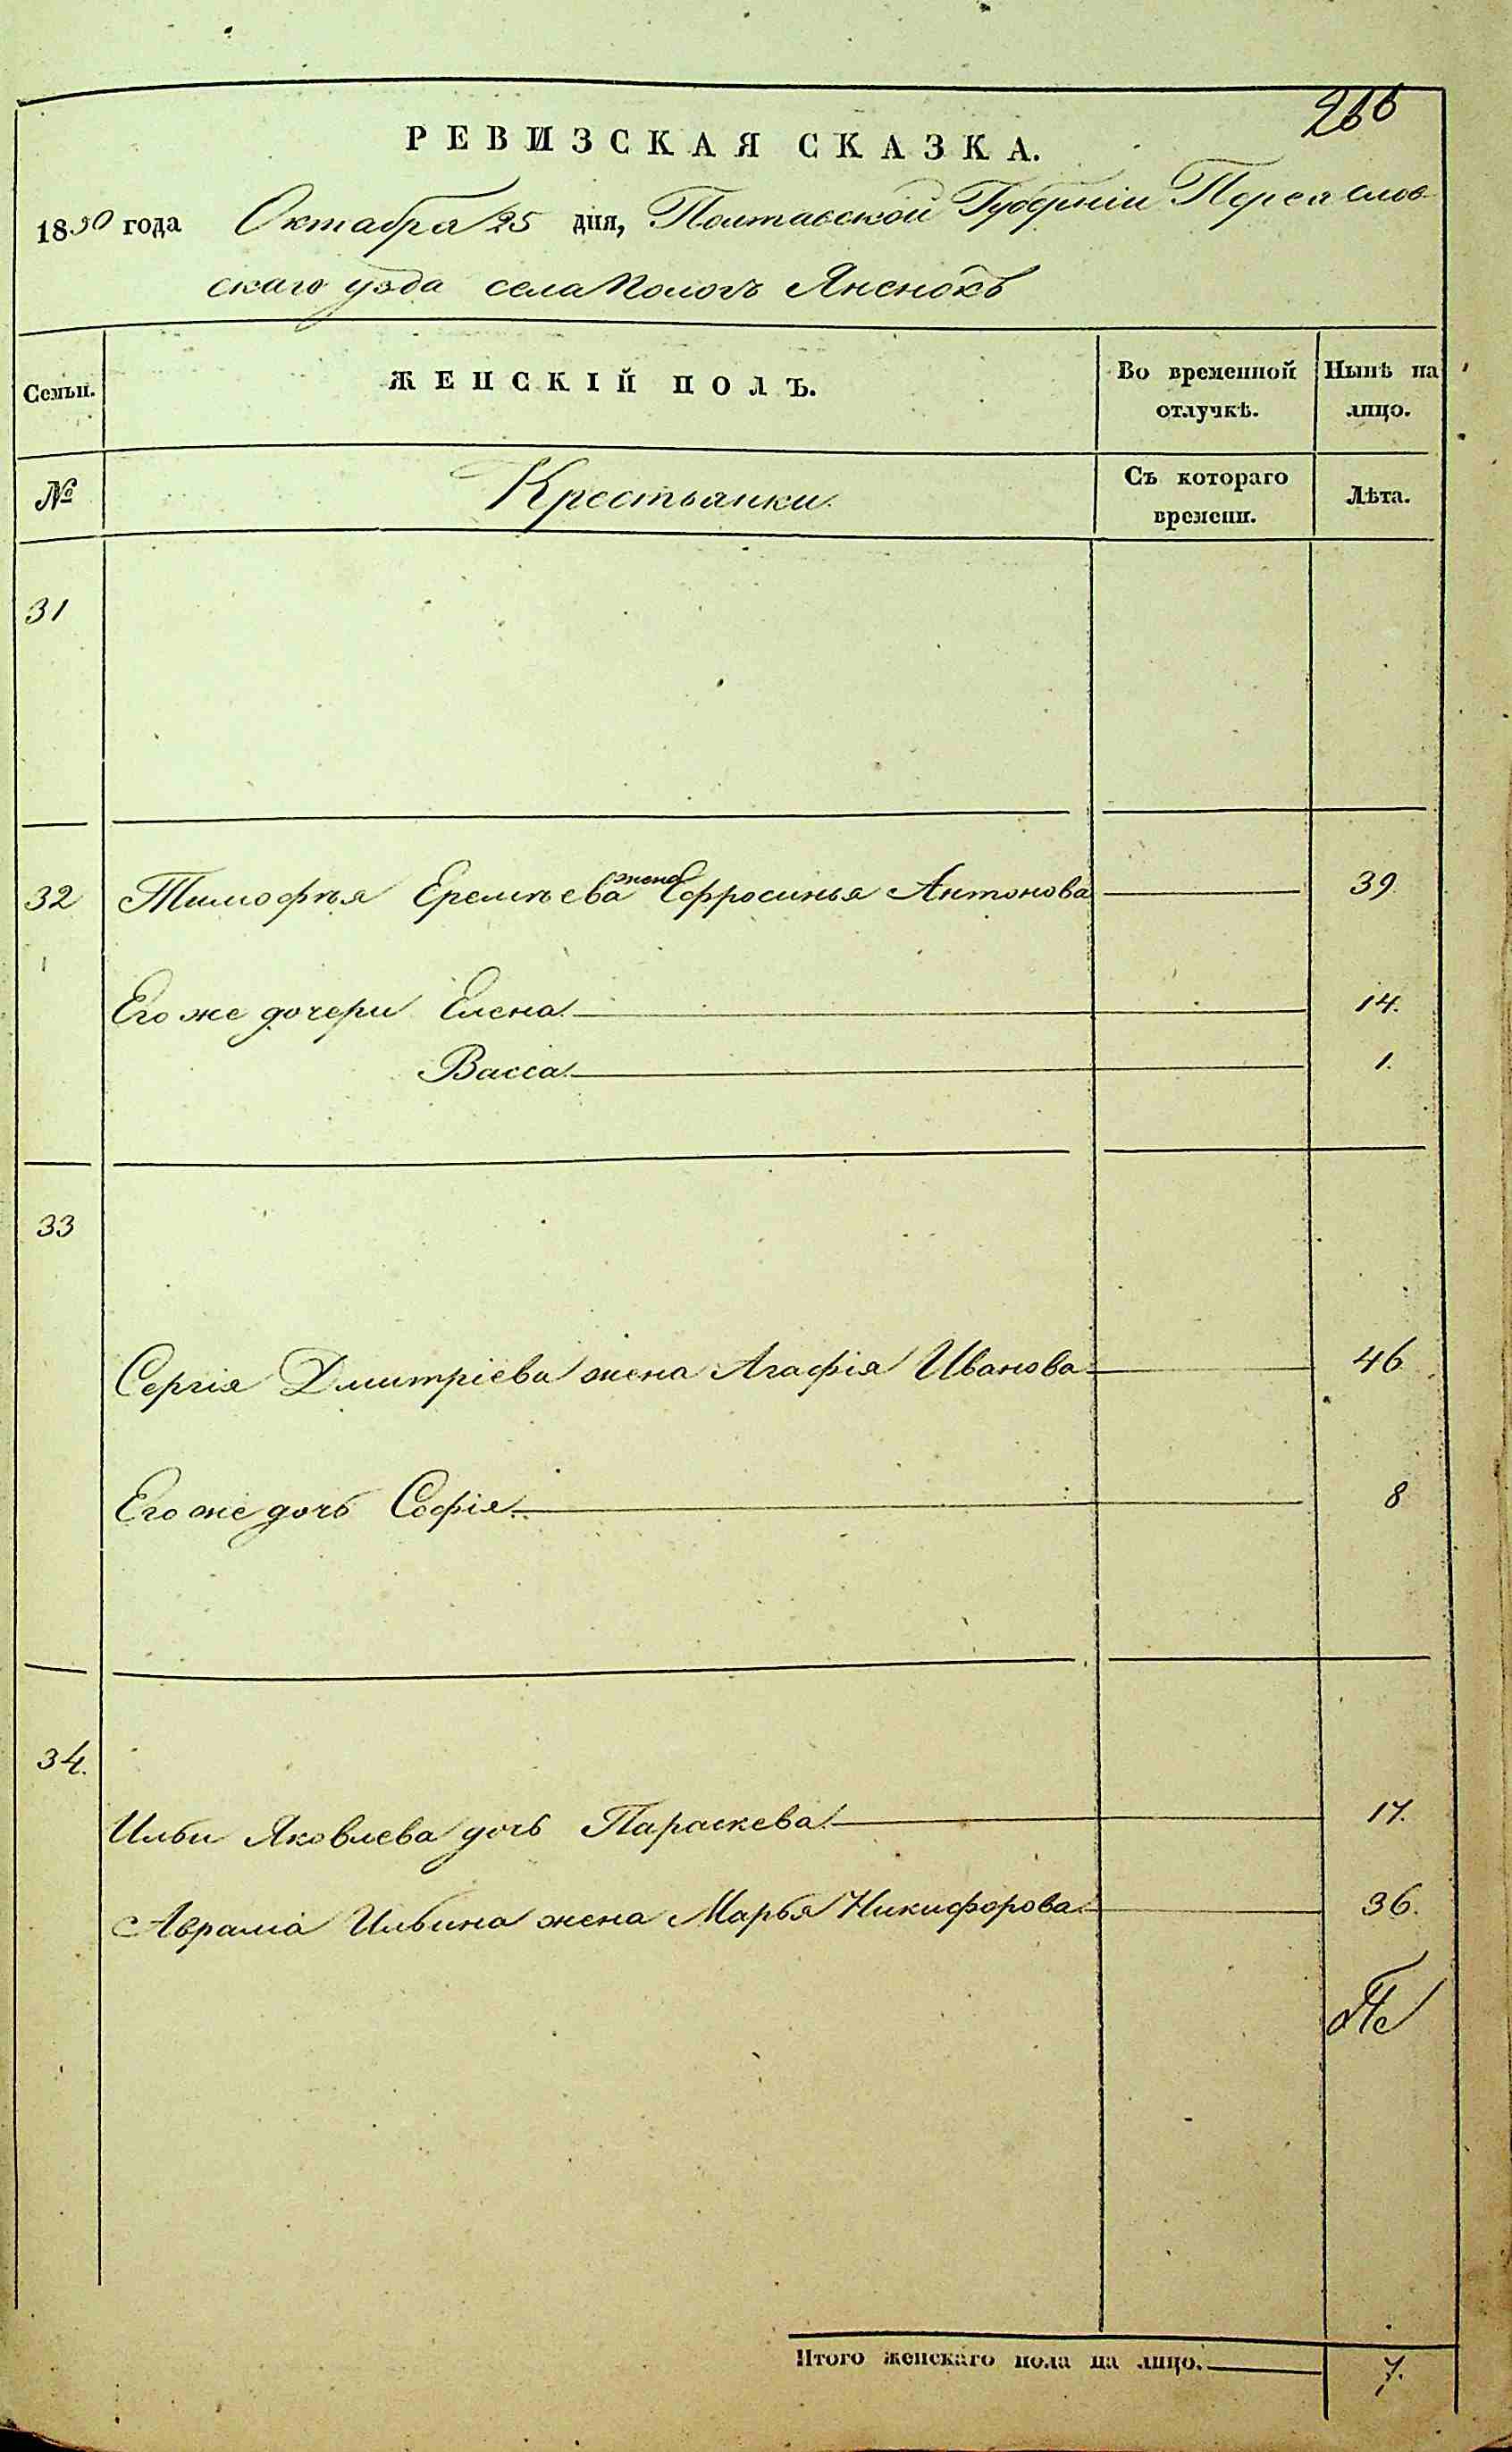 266
РЕВИЗСКАЯ СКАЗКА.
1850 года Октабра 25 дня, Полтавской Губерніи Переяслов-
скаго уѣзда села Пологъ Яненокъ
Семьи. ЖЕНСКІЙ ПОЛЪ. Во временной отлучкѣ. Нынѣ на лицо.
№ Крестьянки. Съ котораго времени. Лѣта.
31
32 Тимофѣя Еремѣева жена Ефросинья Антонова 39
Его же дочери Елена 14.
Васса 1.
33
Сергія Дмитріева жена Агафія Иванова 46
Его же дочь Софія 8
34.
Ильи Яковлева дочь Параскева 17.
Аврама Ильина жена Марья Никифорова 36.
Итого женскаго пола на лицо. 7.